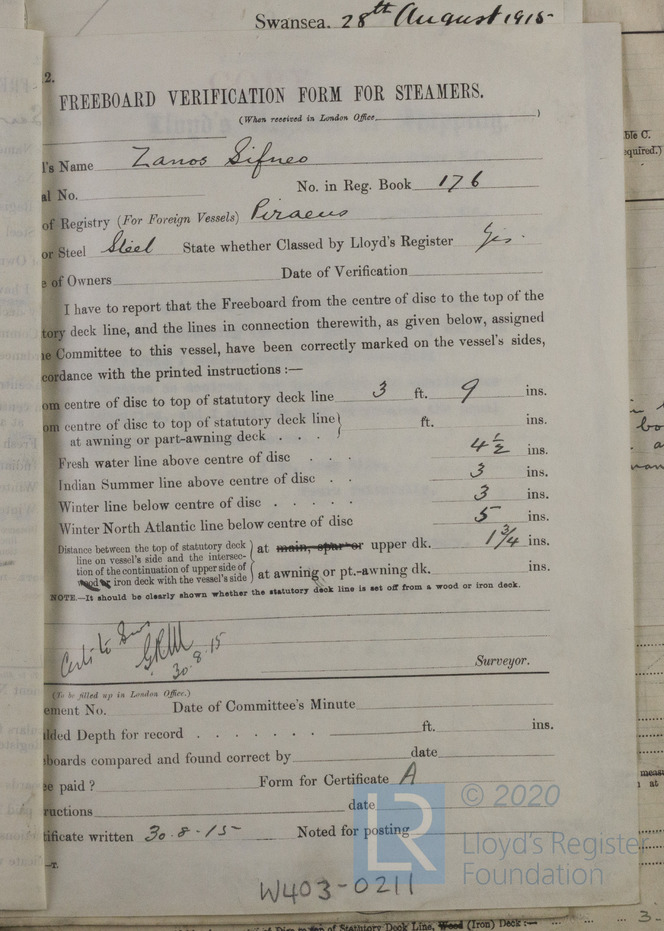 Swansea. 28th August 1915
2.
FREEBOARD VERIFICATION FORM FOR STEAMERS.
(When received in London Office )
ble C.
equired.)
l's Name Zanos Sifneo
al No. No. in Reg. Book 176
of Registry (For Foreign Vessels) Piraeus
or Steel Steel State whether Classed by Lloyd's Register Yes.
e of Owners Date of Verification
I have to report that the Freeboard from the centre of disc to the top of the
tory deck line, and the lines in connection therewith, as given below, assigned
he Committee to this vessel, have been correctly marked on the vessel's sides,
cordance with the printed instructions :—
om centre of disc to top of statutory deck line 3 ft. 9 ins.
om centre of disc to top of statutory deck line ft. ins.
at awning or part-awning deck . . .
Fresh water line above centre of disc . . . 4½ ins.
Indian Summer line above centre of disc . . 3 ins.
Winter line below centre of disc . . . . . 3 ins.
Winter North Atlantic line below centre of disc 5 ins.
Distance between the top of statutory deck
line on vessel's side and the intersec-
tion of the continuation of upper side of
wood or iron deck with the vessel's side
at main, spar or upper dk. 1¾ ins.
at awning or pt.-awning dk. ins.
NOTE.—It should be clearly shown whether the statutory deck line is set off from a wood or iron deck.
30.8.15
Surveyor.
(To be filled up in London Office.)
ement No. Date of Committee's Minute
lded Depth for record . . . . . . . ft. ins.
boards compared and found correct by date
ee paid ? Form for Certificate A
ructions date
tificate written 30.8.15 Noted for posting
—T.
LR © 2020
Lloyd's Register
Foundation
W403-0211
of Statutory Deck Line, Wood (Iron) Deck :—
3